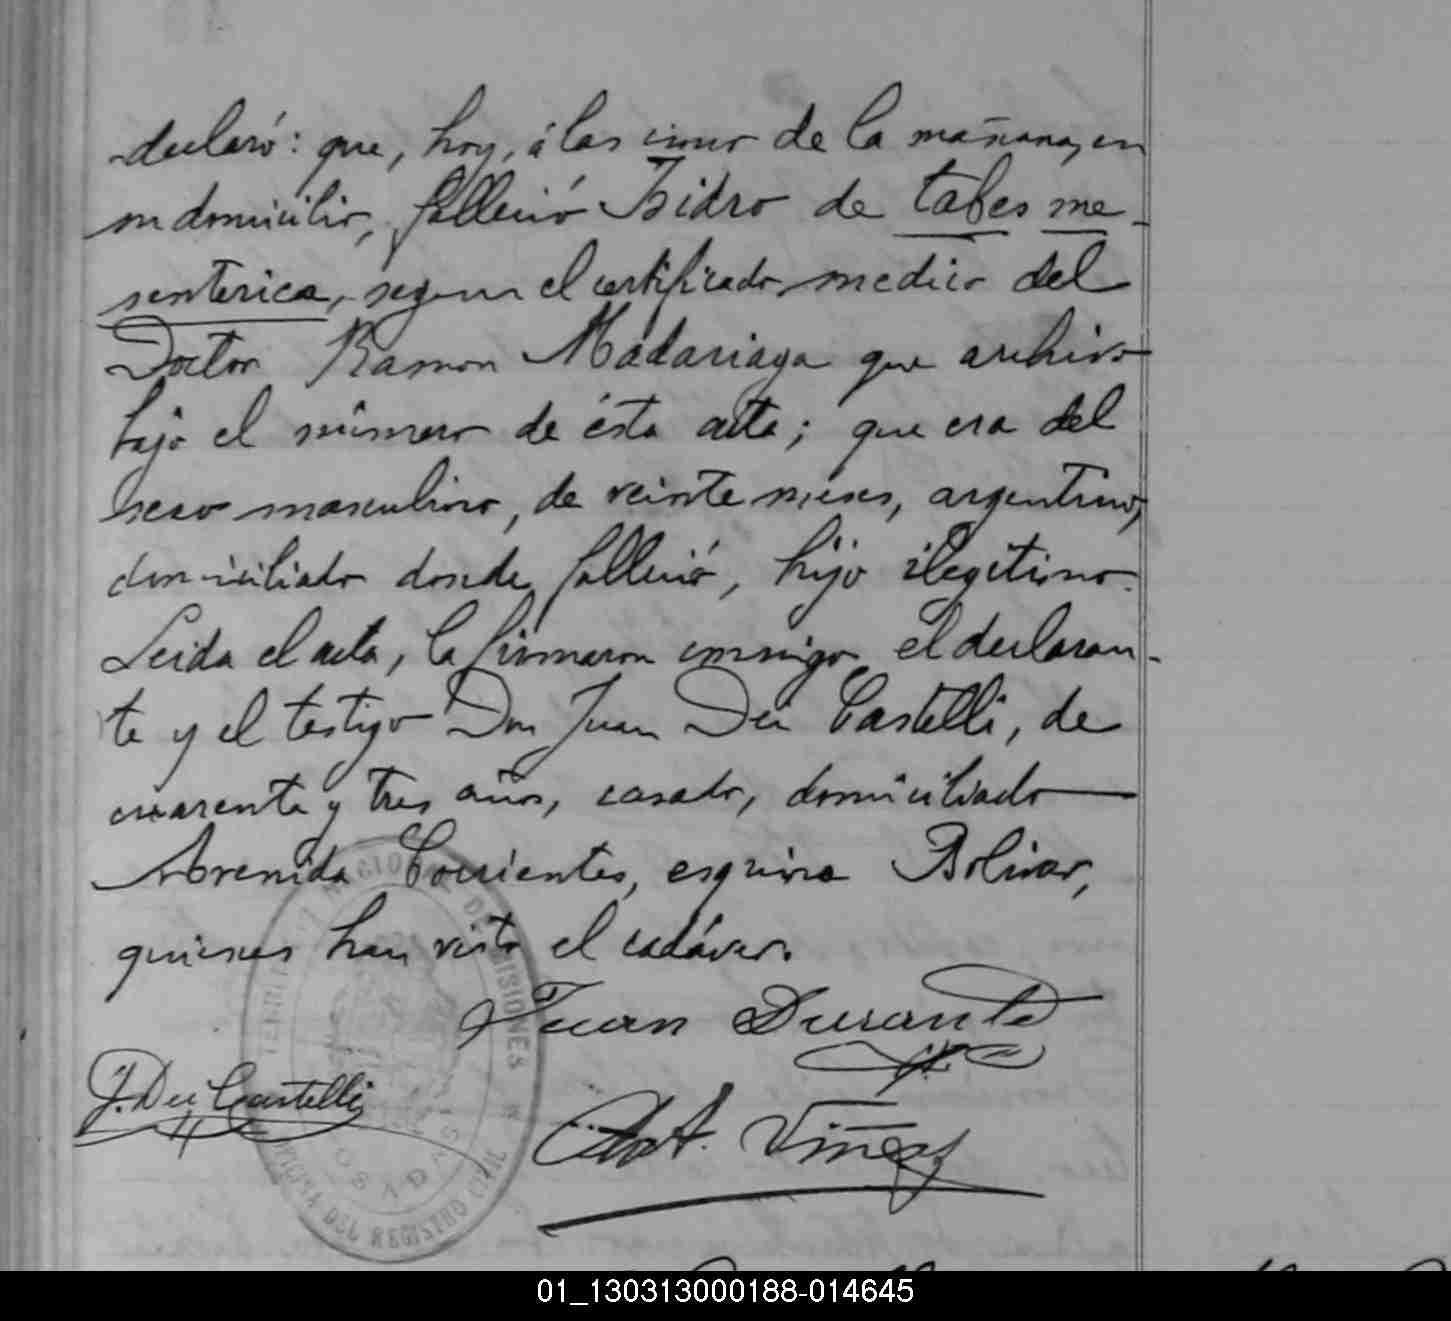 declaró: que, hoy, á las cinco de la mañana, en
su domicilio, falleció Isidro de tabes me-
senterica, segun el certificado medico del
Doctor Ramon Madariaga que archivo
bajo el número de ésta acta; que era del
sexo masculino, de veinte meses, argentino,
domiciliado donde falleció, hijo ilegitimo.
Leida el acta, la firmaron conmigo el declaran-
te y el testigo Don Juan Dei Castelli, de
cuarenta y tres años, casado, domiciliado
Avenida Corrientes, esquina Bolivar,
quienes han visto el cadáver.
Juan Durante
J. Dei Castelli
Ant. Viñas
NACIONAL DE MISIONES
POSADAS
OFICINA DEL REGISTRO CIVIL
01_130313000188-014645